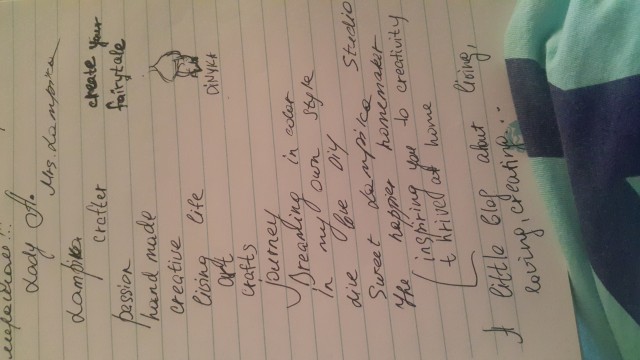 Lady A.
Mrs. Lampika
Lampika crafter
create your
fairytale
passion
hand made
creative
living life
art
crafts
journey
Dreaming in color
In my own style
love DIY
Sweet Lampika Studio
The happier homemaker
inspiring you to creativity
thrive at home
A little blog about living,
loving, creating...